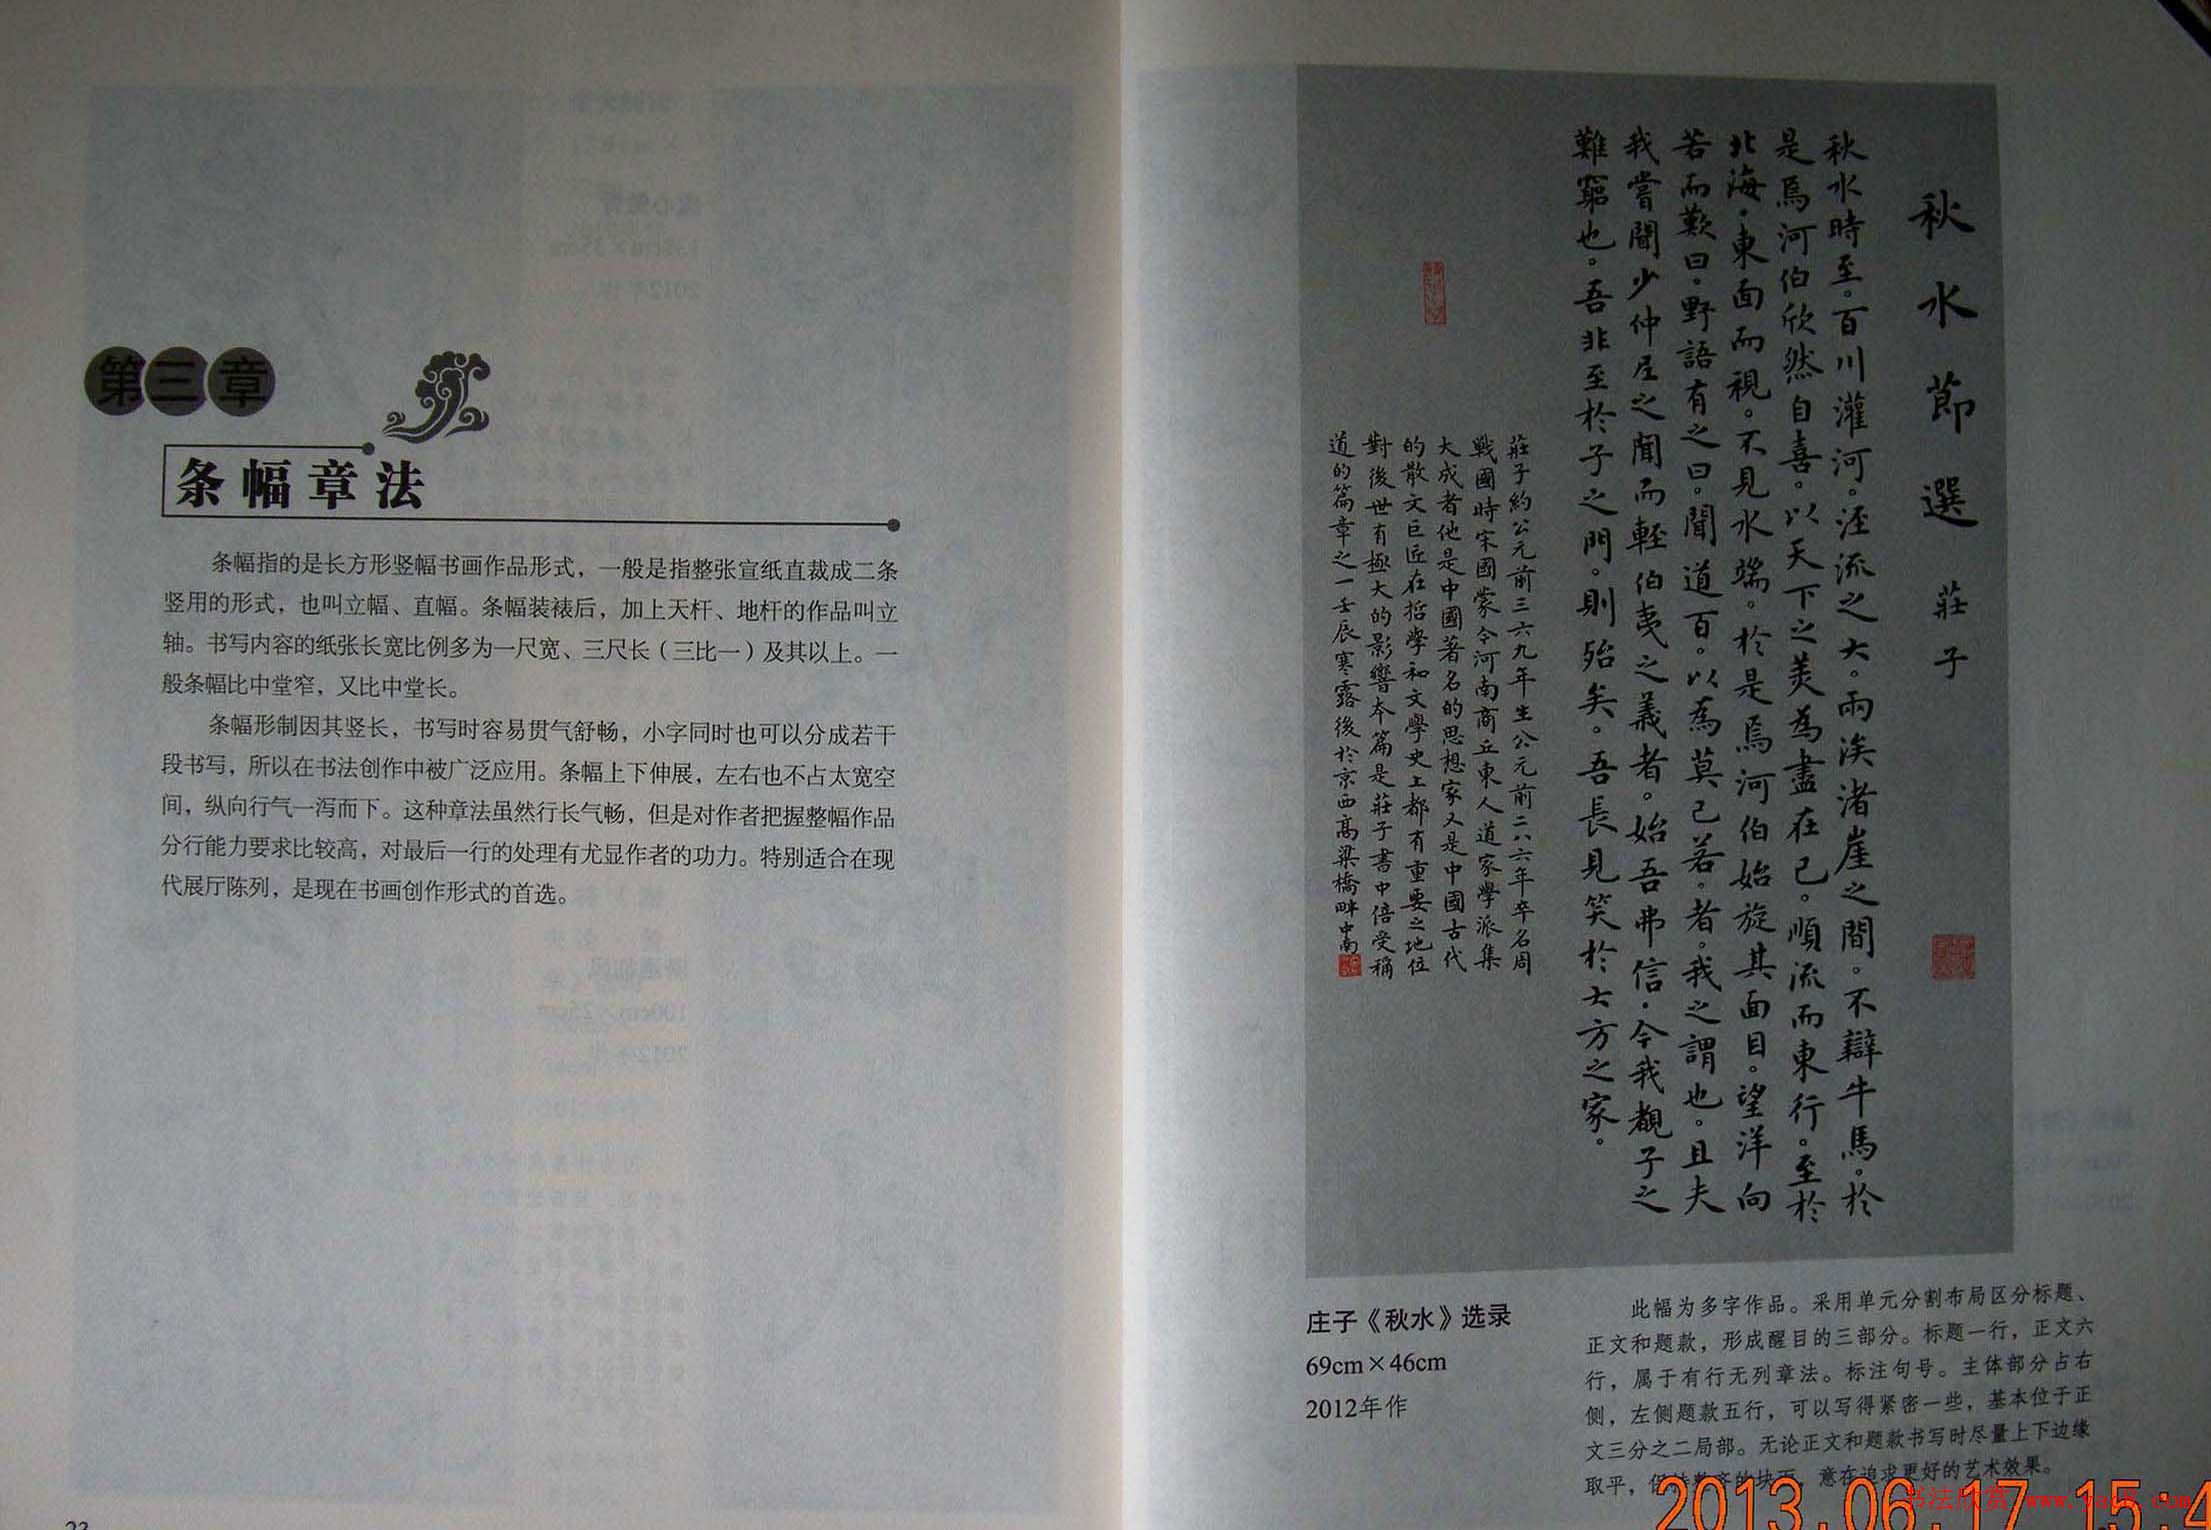 第三章
条幅章法
条幅指的是长方形竖幅书画作品形式，一般是指整张宣纸直裁成二条
竖用的形式，也叫立幅、直幅。条幅装裱后，加上天杆、地杆的作品叫立
轴。书写内容的纸张长宽比例多为一尺宽、三尺长（三比一）及其以上。一
般条幅比中堂窄，又比中堂长。
条幅形制因其竖长，书写时容易贯气舒畅，小字同时也可以分成若干
段书写，所以在书法创作中被广泛应用。条幅上下伸展，左右也不占太宽空
间，纵向行气一泻而下。这种章法虽然行长气畅，但是对作者把握整幅作品
分行能力要求比较高，对最后一行的处理有尤显作者的功力。特别适合在现
代展厅陈列，是现在书画创作形式的首选。
秋水節選 莊子
秋水時至。百川灌河。涇流之大。兩涘渚崖之間。不辯牛馬。於
是焉河伯欣然自喜。以天下之美為盡在己。順流而東行。至於
北海。東面而視。不見水端。於是焉河伯始旋其面目。望洋向
若而歎曰。野語有之曰。聞道百。以為莫己若。者。我之謂也。且夫
我嘗聞少仲尼之聞而輕伯夷之義者。始吾弗信。今我覩子之
難窮也。吾非至於子之門。則殆矣。吾長見笑於大方之家。
莊子約公元前三六九年生公元前二八六年卒名周
戰國時宋國蒙今河南商丘東人道家學派集
大成者他是中國著名的思想家又是中國古代
的散文巨匠在哲學和文學史上都有重要之地位
對後世有極大的影響本篇是莊子書中倍受稱
道的篇章之一壬辰寒露後於京西高粱橋畔中南
庄子《秋水》选录
69cm×46cm
2012年作
此幅为多字作品。采用单元分割布局区分标题、
正文和题款，形成醒目的三部分。标题一行，正文六
行，属于有行无列章法。标注句号。主体部分占右
侧，左侧题款五行，可以写得紧密一些，基本位于正
文三分之二局部。无论正文和题款书写时尽量上下边缘
取平，保持整齐的块面，意在追求更好的艺术效果。
2013.06.17 15:4
书法欣赏